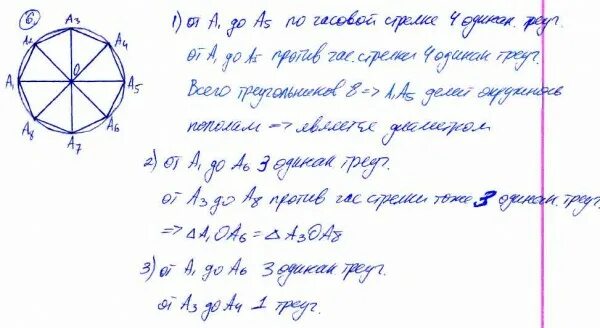 6.
A3
A2 A4
A1 O A5
A8 A6
A7
1) от A1 до A5 по часовой стрелке 4 одинак. треуг.
от A1 до A5 против час. стрелки 4 одинак треуг.
Всего треугольников 8 => A1A5 делит окружность
пополам => является диаметром
2) от A1 до A6 3 одинак треуг.
от A3 до A8 против час стрелки тоже 3 одинак. треуг.
=> △A1OA6 = △A3OA8
3) от A1 до A6 3 одинак треуг.
от A3 до A4 1 треуг.